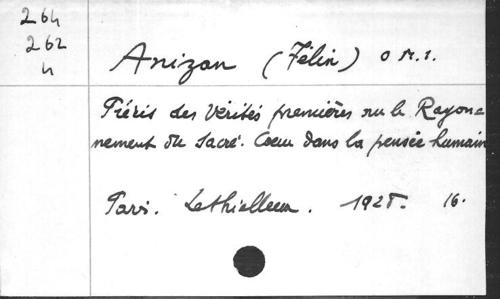 264
262
h
Anizan (Félix) O.M.I.
Précis des Vérités premières sur le Rayon=
nement du Sacré-Coeur dans la pensée humain
Paris. Lethielleux. 1925. 16.